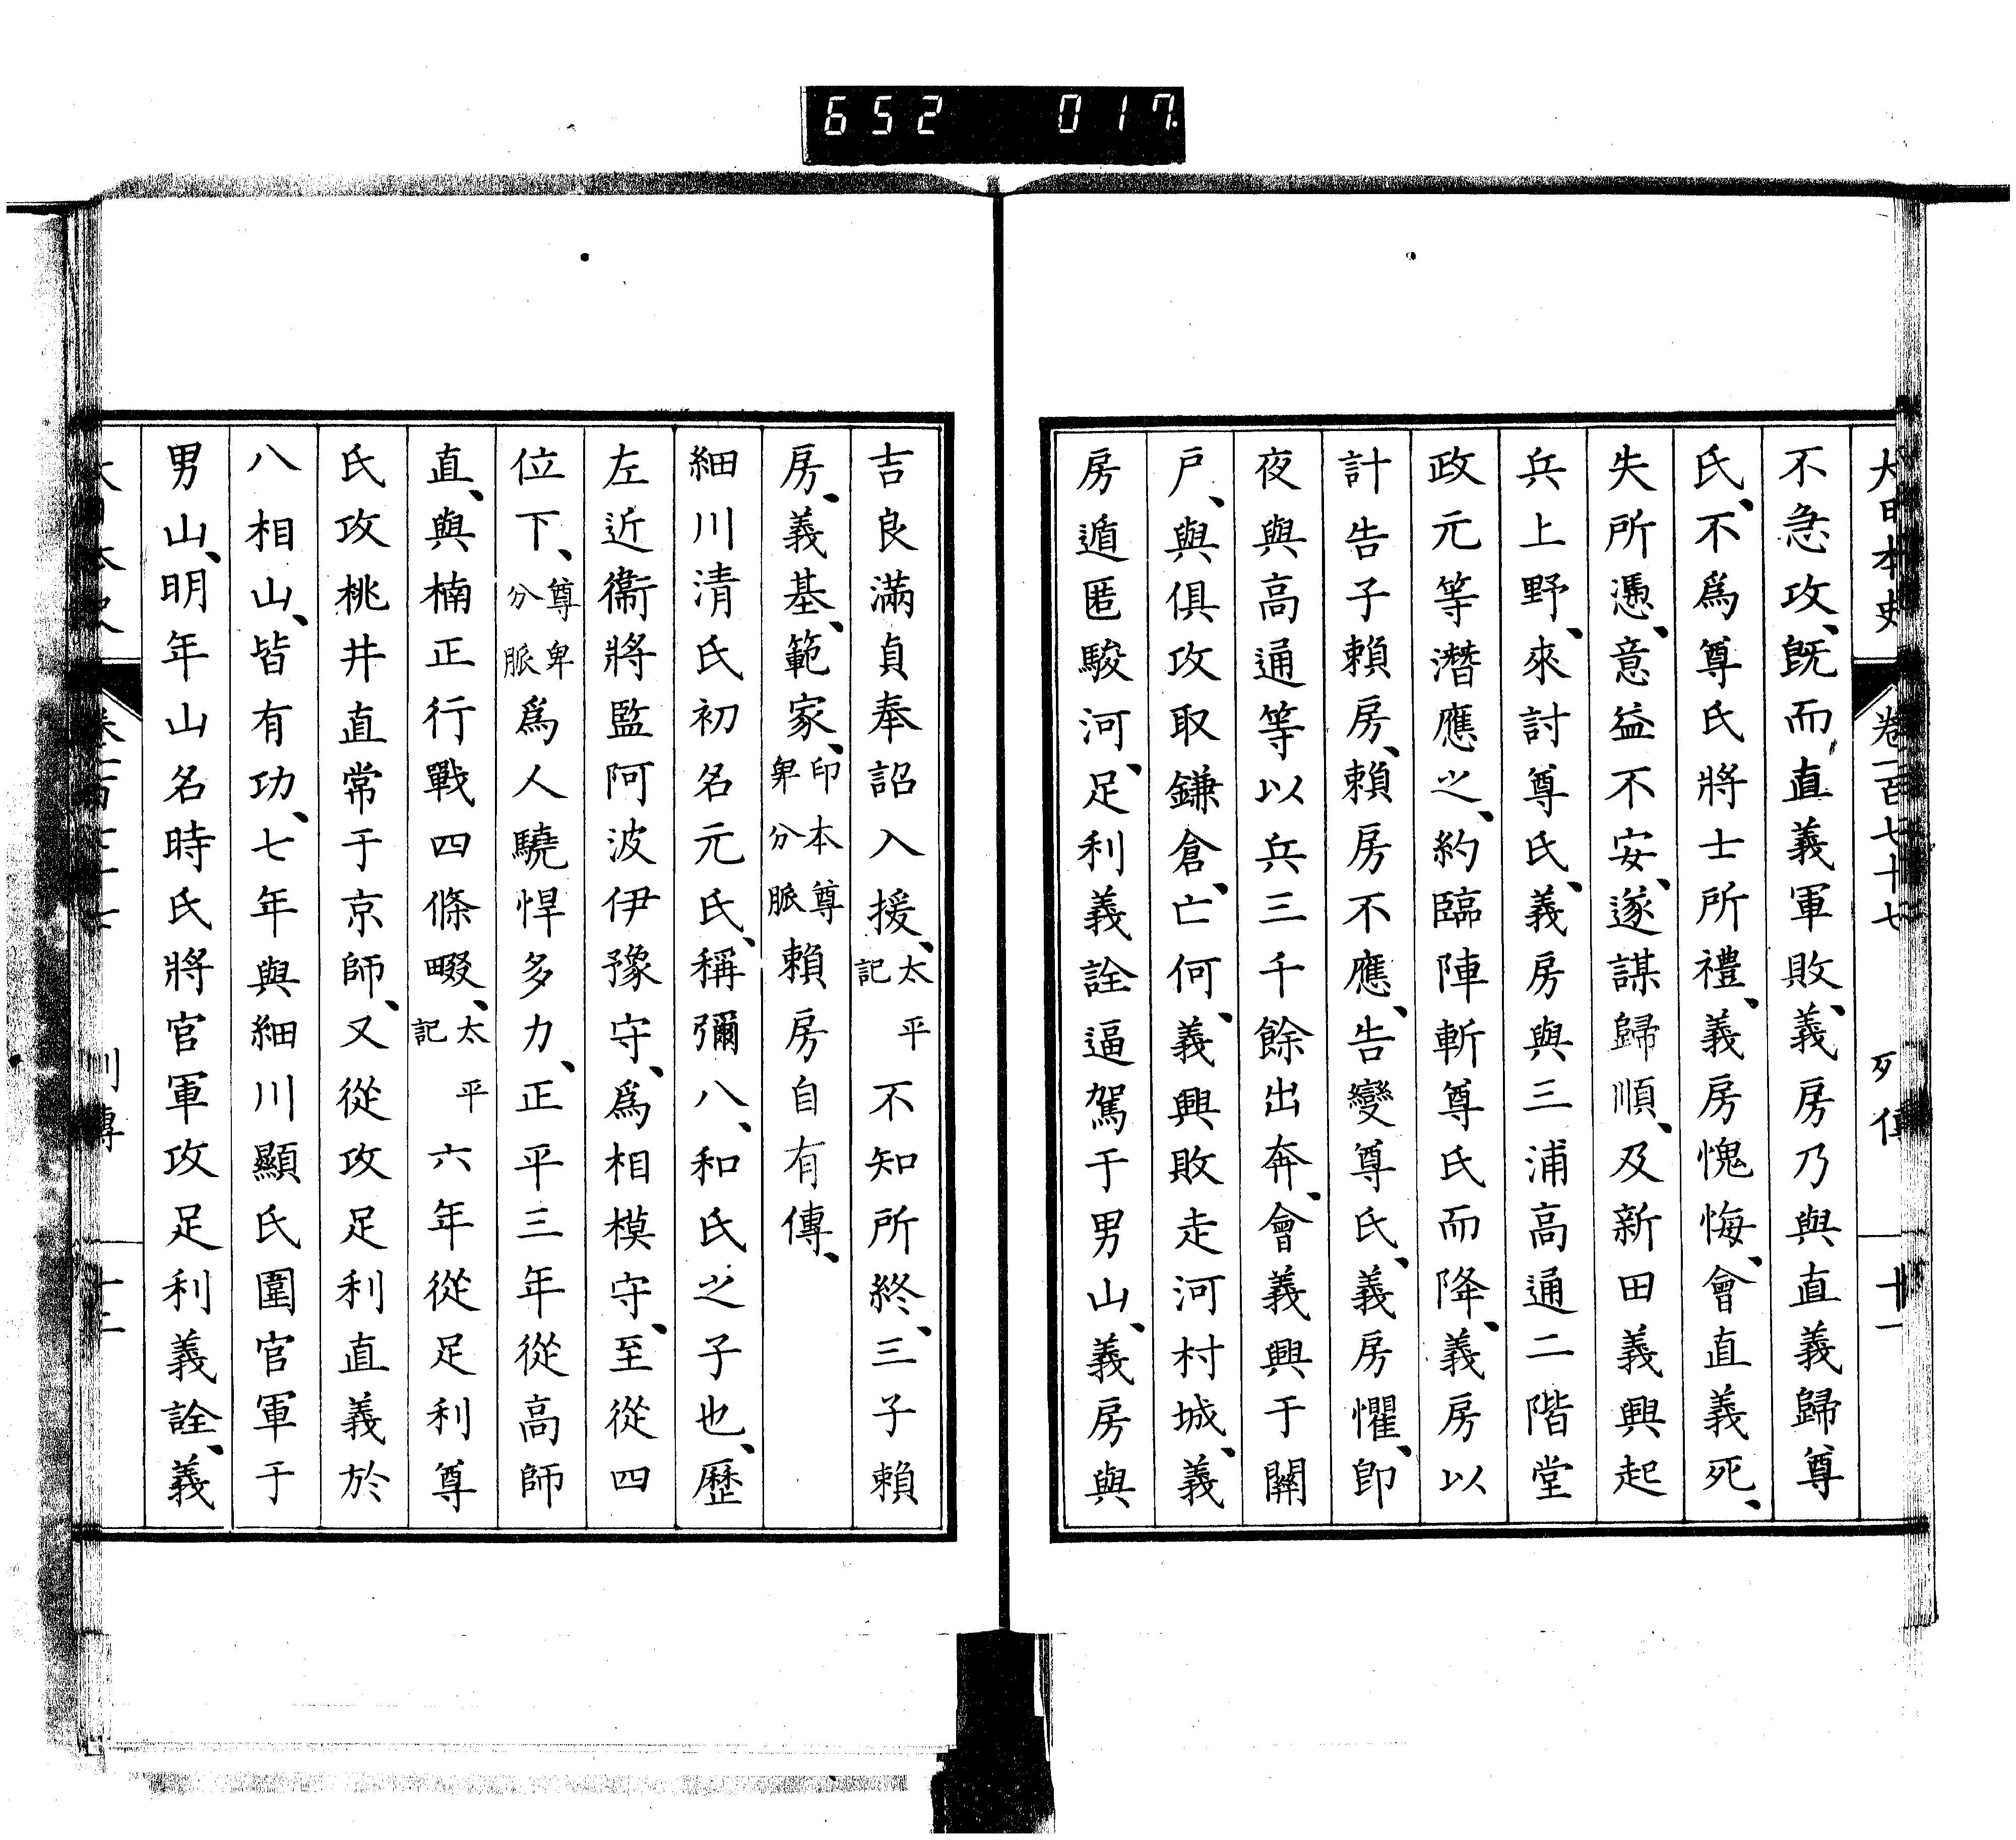 652 017
大日本史 卷一百七十七 列傳 十一
不急攻、既而直義軍敗、義房乃與直義歸尊
氏、不爲尊氏將士所禮、義房愧悔、會直義死、
失所憑、意益不安、遂謀歸順、及新田義興起
兵上野、來討尊氏、義房與三浦高通二階堂
政元等潛應之、約臨陣斬尊氏而降、義房以
計告子賴房、賴房不應、告變尊氏、義房懼、卽
夜與高通等以兵三千餘出奔、會義興于關
戶、與俱攻取鎌倉、亡何、義興敗走河村城、義
房遁匿駿河、足利義詮逼駕于男山、義房與
吉良滿貞奉詔入援、太平記不知所終、三子賴
房、義基、範家、印本尊卑分脈賴房自有傳、
細川清氏初名元氏、稱彌八、和氏之子也、歷
左近衞將監阿波伊豫守、爲相模守、至從四
位下、尊卑分脈爲人驍悍多力、正平三年從高師
直、與楠正行戰四條畷、太平記六年從足利尊
氏攻桃井直常于京師、又從攻足利直義於
八相山、皆有功、七年與細川顯氏圍官軍于
男山、明年山名時氏將官軍攻足利義詮、義